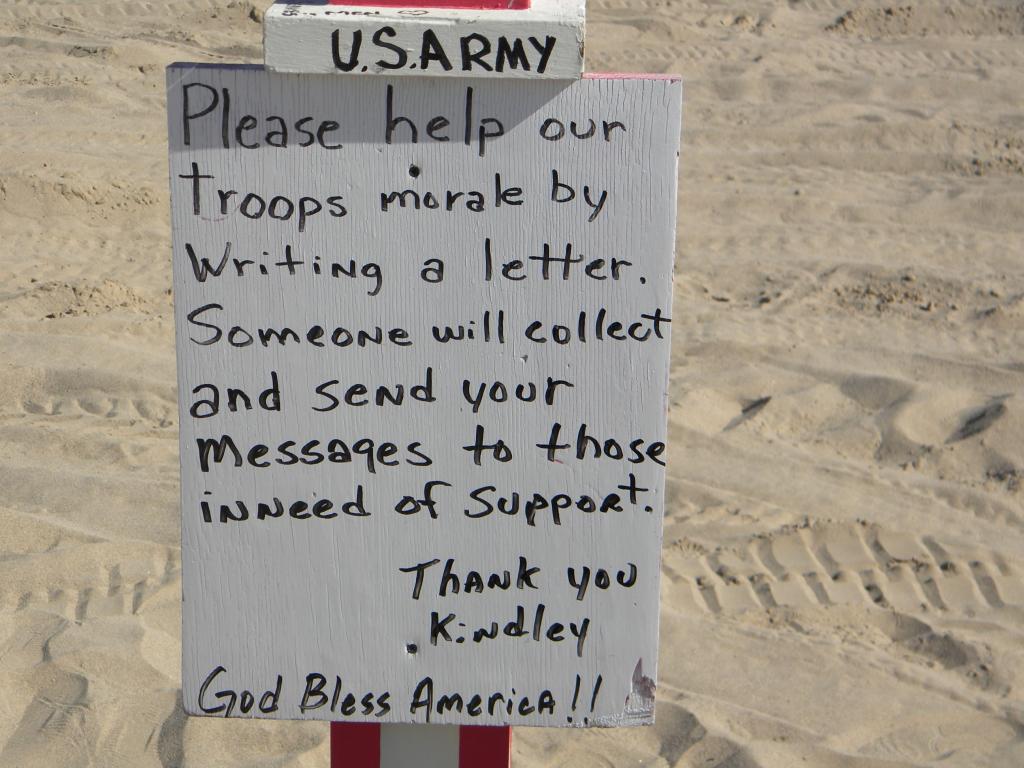 U.S.ARMY
Please help our
troops morale by
Writing a letter.
Someone will collect
and send your
messages to those
inNeed of support.
Thank you
Kindley
God Bless America!!